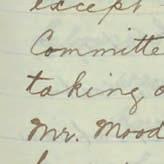 except
Committe
taking
Mr. Mood